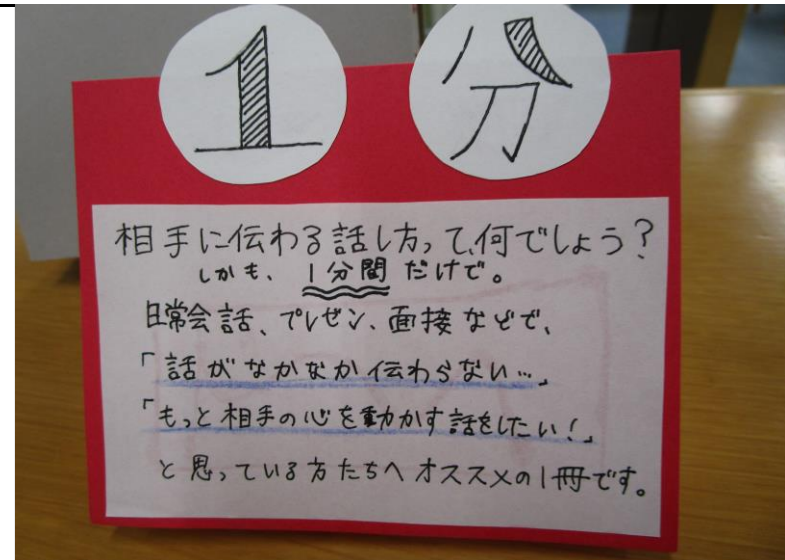 1分
相手に伝わる話し方って、何でしょう？
しかも、1分間だけで。
日常会話、プレゼン、面接などで、
「話がなかなか伝わらない…」
「もっと相手の心を動かす話をしたい！」
と思っている方たちへオススメの1冊です。